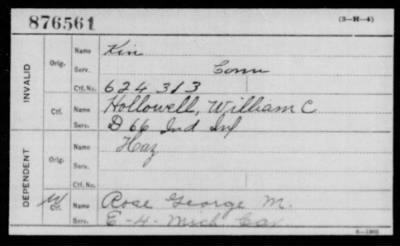 876561 (3-H-4)
INVALID Orig. Name Kin
Serv. Conn
Ctf. No. 624313
Ctf. Name Hollowell, William C
Serv. D 66 Ind Inf
DEPENDENT Orig. Name Haz
Serv.
Ctf. No.
W Ctf. Name Rose George M.
Serv. E-4-Mich Cav